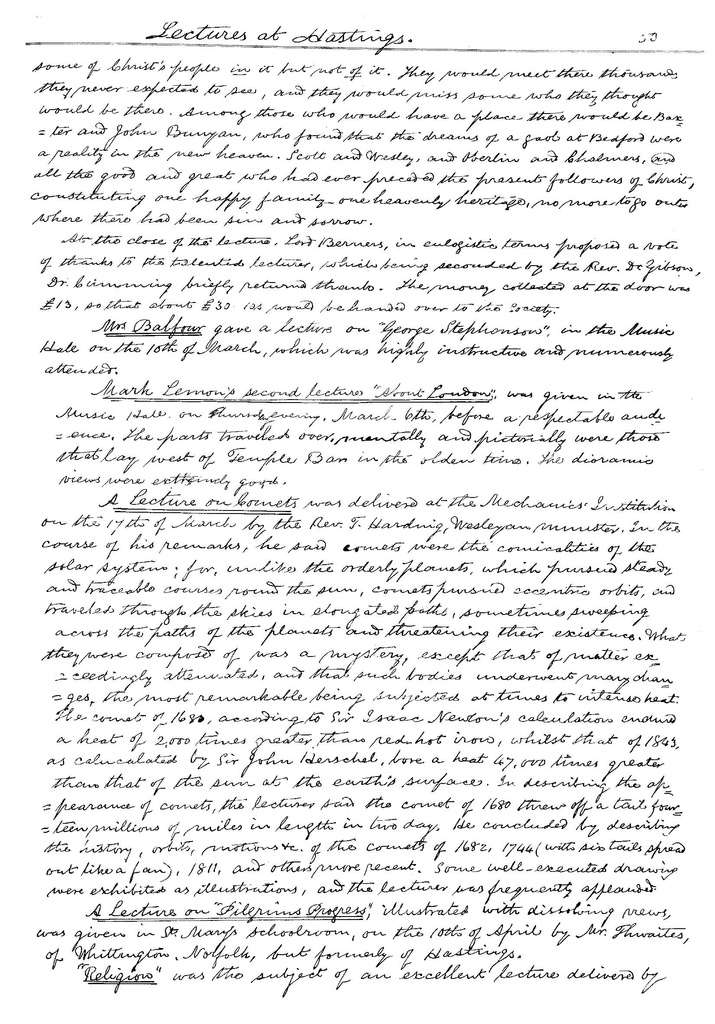 Lectures at Hastings. 53
some of Christ's people in it but not of it. They would meet there thousands
they never expected to see, and they would miss some who they thought
would be there. Among those who would have a place there would be Bax=
=ter and John Bunyan, who found that the dreams of a gaol at Bedford were
a reality in the new heaven. Scott and Wesley, and Oberlin and Chalmers, and
all the good and great who had ever preceded the present followers of Christ,
constituting one happy family - one heavenly heritage, no more to go out
where there had been sin and sorrow.
At the close of the lecture. Lord Berners, in eulogistic terms proposed a vote
of thanks to the talented lecturer, which being seconded by the Rev. Dr Gibson,
Dr. Cumming briefly returned thanks. The money collected at the door was
£13, so that about £30 would be handed over to the Society.
Mrs Balfour gave a lecture on "George Stephenson", in the Music
Hale on the 10th of March, which was highly instructive and numerously
attended.
Mark Lemon's second lecture "About London", was given in the
Music Hale. on Thursday evening, March 6th, before a respectable audi
=ence. The parts traveled over, mentally and pictorially were those
that lay west of Temple Bar in the olden time. The dioramic
views were extremely good.
A Lecture on Comets was delivered at the Mechanics' Institution
on the 17th of March by the Rev. T. Harding, Wesleyan minister. In the
course of his remarks, he said comets were the comicalities of the
solar system; for, unlike the orderly planets, which pursued steady
and traceable courses round the sun, comets pursued eccentric orbits, and
traveled through the skies in elongated paths, sometimes sweeping
across the paths of the planets and threatening their existence. What
they were composed of was a mystery, except that of matter ex=
=ceedingly attenuated, and that such bodies underwent many chan
=ges, the most remarkable being subjected at times to intense heat.
The comet of 1680, according to Sir Isaac Newton's calculation endured
a heat of 2,000 times greater than red-hot iron, whilst that of 1843,
as caluculated by Sir John Herschel, bore a heat 47,000 times greater
than that of the sun at the earth's surface. In describing the ap=
=pearance of comets, the lecturer said the comet of 1680 threw off a tail four=
=teen millions of miles in length in two days. He concluded by describing
the history, orbits, motions &c. of the comets of 1682, 1744 (with six tails spread
out like a fan), 1811, and others more recent. Some well-executed drawings
were exhibited as illustrations, and the lecturer was frequently applauded
A Lecture on "Pilgrims Progress", illustrated with dissolving views,
was given in St. Mary's schoolroom, on the 10th of April by Mr. Thwaites,
of Whittington, Norfolk, but formerly of Hastings.
"Religion" was the subject of an excellent lecture delivered by